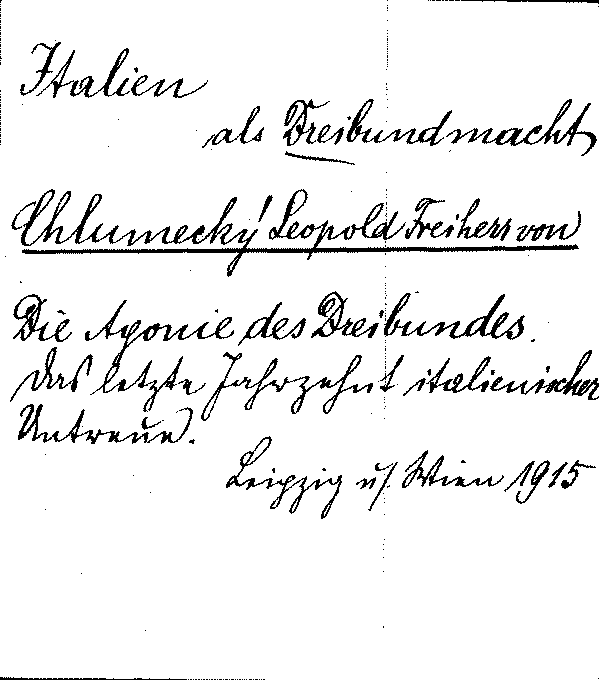 Italien
als Dreibundmacht
Chlumecký Leopold Freiherr von
Die Agonie des Dreibundes.
Das letzte Jahrzehnt italienischer
Untreue.
Leipzig u/ Wien 1915